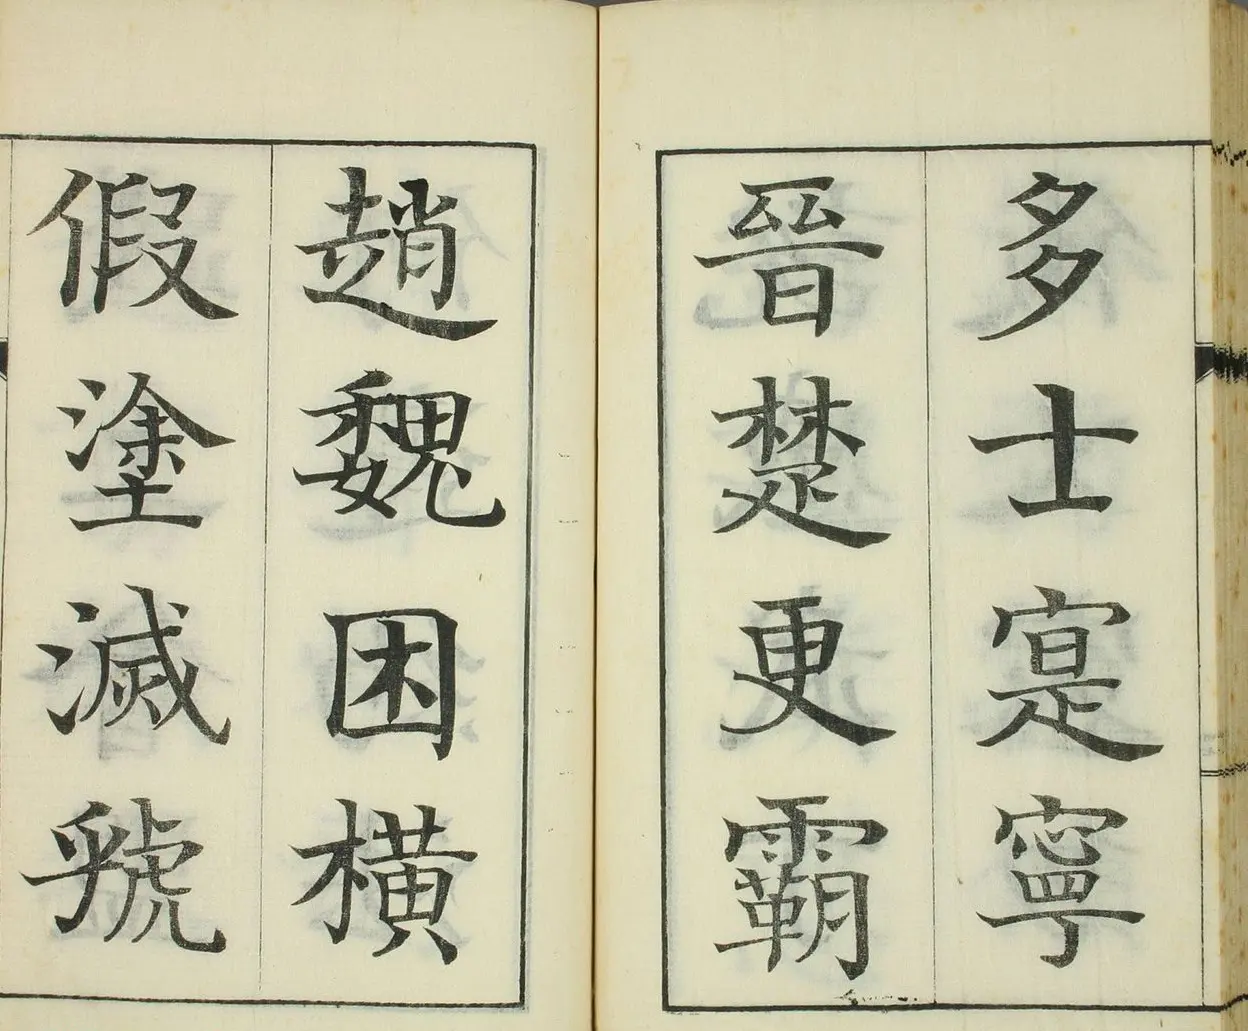 多士寔寧
晉楚更霸
趙魏困橫
假塗滅虢